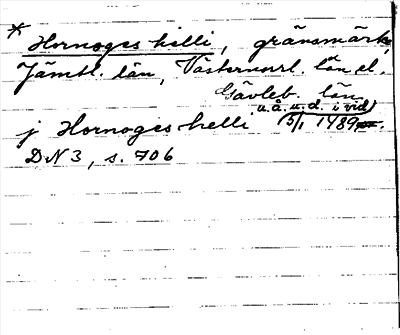 * Hornoges helli, gränsmärke,
Jämtl. län, Västernorrl. län el.
Gävleb. län
u.å.u.d. i vid.
j Hornoges helli 15/1 1489.
DN 3, s. 706